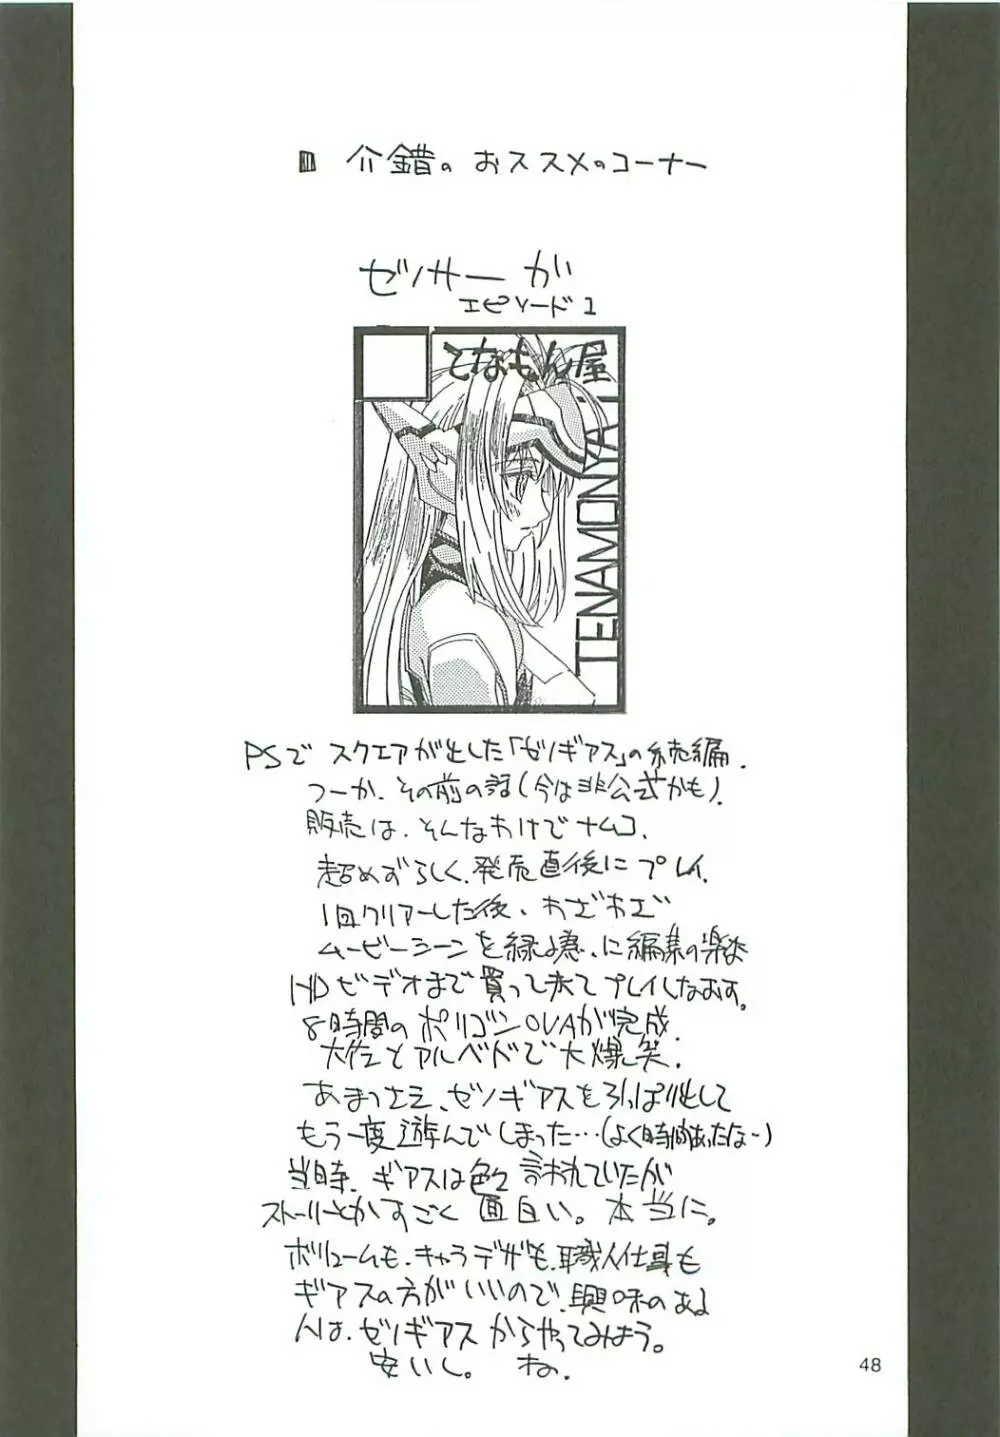 介錯の おススメのコーナー
ゼノサーガ
エピソード1
となもん屋
TENAMONYA
PSで スクエアが出した「ゼノギアス」の続編.
つーか、その前の話(今は非公式かも).
販売は、そんなわけでナムコ.
超めずらしく、発売直後にプレイ.
1回クリアーした後、わざわざ
ムービーシーンを録る為、に編集の楽な
HDビデオまで買って来てプレイしなおす。
8時間のポリゴンOVAが完成.
大佐とアルベドで大爆笑.
あまつさえ、ゼノギアスをひっぱり出して
もう一度遊んでしまった…(よく時間あったな〜)
当時、ギアスは色々言われていたが
ストーリーとかすごく 面白い。本当に。
ボリュームも、キャラデザも、職人仕事も
ギアスの方がいいので、興味のある
人は、ゼノギアスからやってみよう。
安いし。 ね.
48